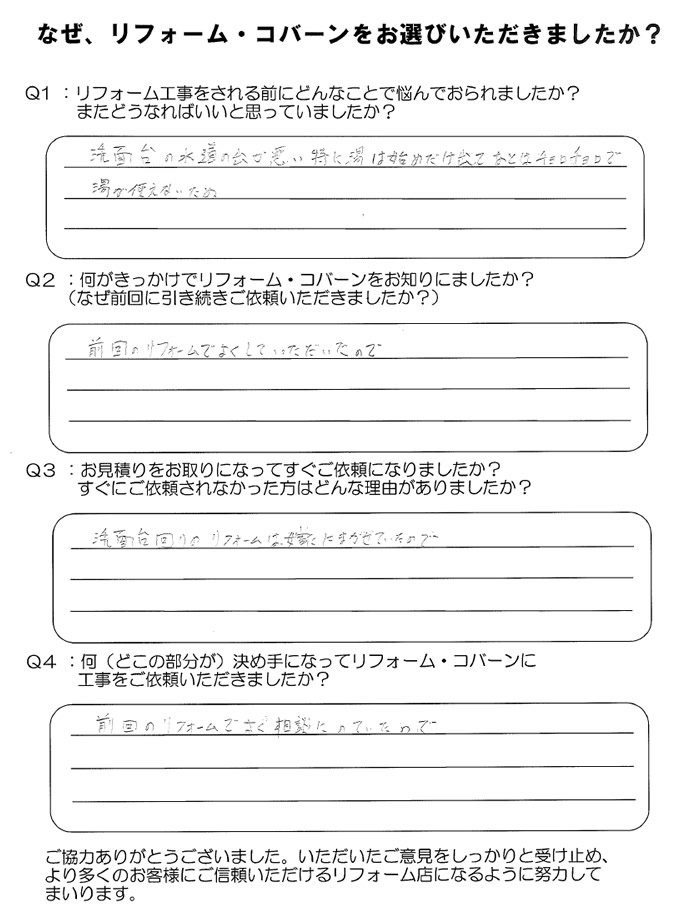 なぜ、リフォーム・コバーンをお選びいただきましたか？
Q1：リフォーム工事をされる前にどんなことで悩んでおられましたか？
またどうなればいいと思っていましたか？
洗面台の水道の出が悪い 特に湯は始めだけ出て あとはチョロチョロで
湯が使えないため
Q2：何がきっかけでリフォーム・コバーンをお知りにましたか？
（なぜ前回に引き続きご依頼いただきましたか？）
前回のリフォームでよくしていただいたので
Q3：お見積りをお取りになってすぐご依頼になりましたか？
すぐにご依頼されなかった方はどんな理由がありましたか？
洗面台回りのリフォームは にまかせていたので
Q4：何（どこの部分が）決め手になってリフォーム・コバーンに
工事をご依頼いただきましたか？
前回のリフォームで 相談にのっていたので
ご協力ありがとうございました。いただいたご意見をしっかりと受け止め、
より多くのお客様にご信頼いただけるリフォーム店になるように努力して
まいります。